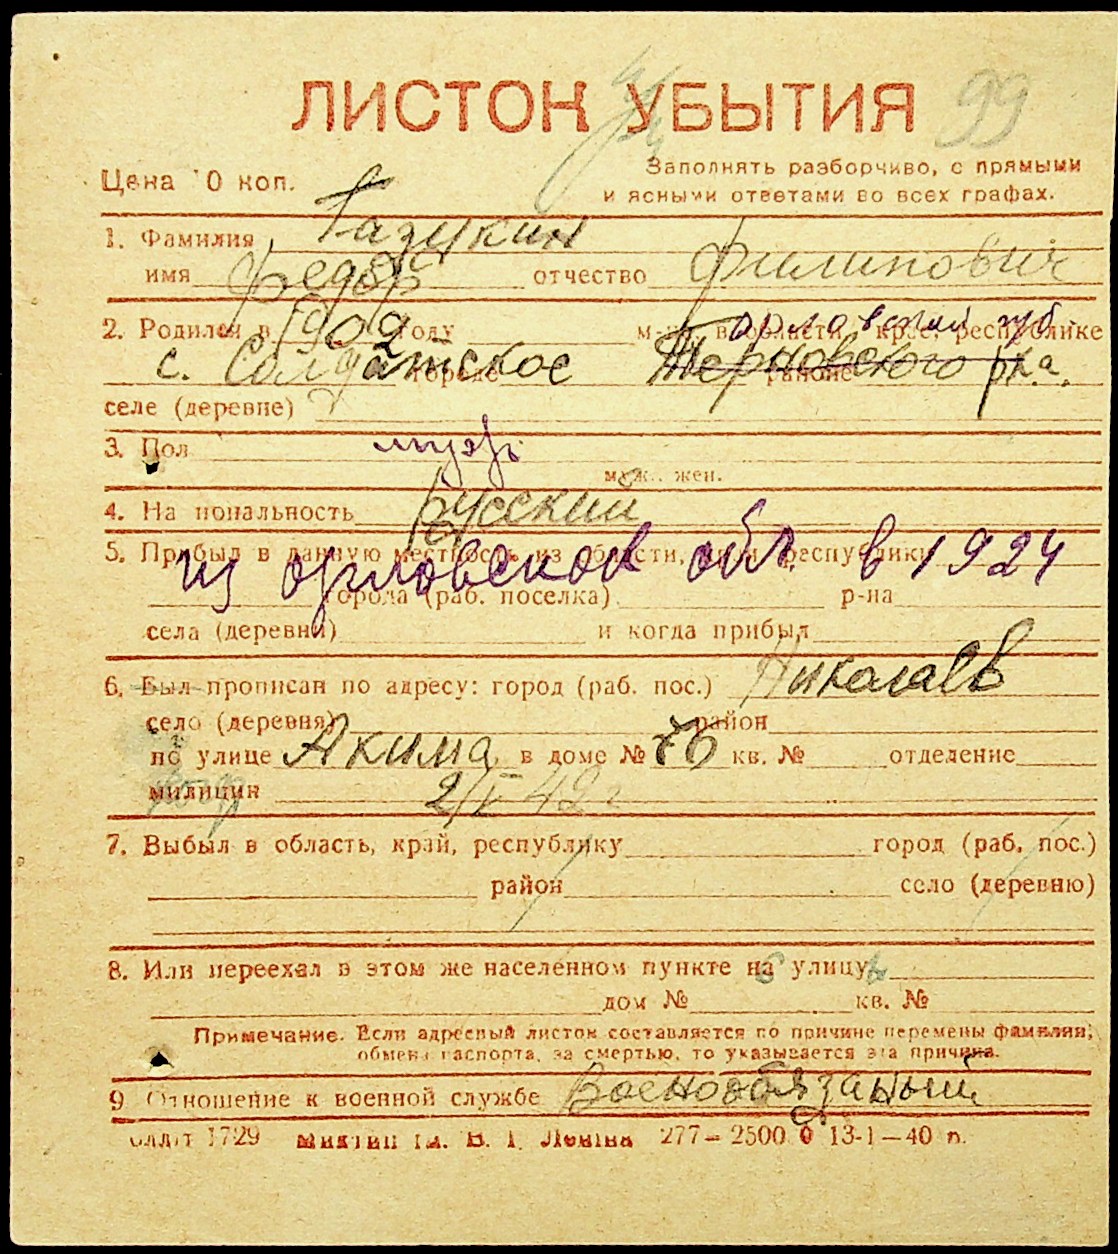 ЛИСТОК УБЫТИЯ 99
Цена 10 коп.
Заполнять разборчиво, с прямыми
и ясными ответами во всех графах.
1. Фамилия Газукин
имя Федор отчество Филипович
2. Родился в 1909 году Орловский губ. республике
с. Солдатское городе Терновского районе р-на
селе (деревне)
3. Пол муж
муж. жен.
4. Национальность русский
5. Прибыл в данную местность из области, края республики
из орловской обл. в 1924
города (раб. поселка) р-на
села (деревни) и когда прибыл
6. Был прописан по адресу: город (раб. пос.) Николаев
село (деревня) район
по улице Акима в доме № 76 кв. № отделение
милиции 2/I 42 г
7. Выбыл в область, край, республику город (раб. пос.)
район село (деревню)
8. Или переехал в этом же населенном пункте на улицу
дом № кв. №
Примечание. Если адресный листок составляется по причине перемены фамилии,
обмена паспорта, за смертью, то указывается эта причина.
9. Отношение к военной службе Военообязаный
1729 В. І. Леніна 277—2500 0 13-1—40 п.